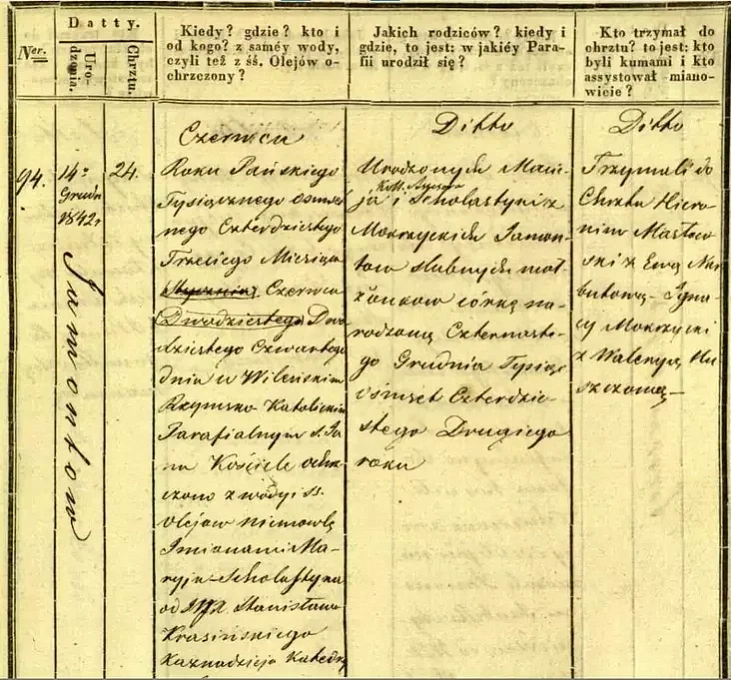 Ner.
Datty.
Uro-
dzenia.
Chrztu.
Kiedy? gdzie? kto i
od kogo? z saméy wody,
czyli też z śś. Olejów o-
chrzczony?
Jakich rodziców? kiedy i
gdzie, to jest: w jakiéy Para-
fii urodził się?
Kto trzymał do
chrztu? to jest: kto
byli kumami i kto
assystował miano-
wicie?
94.
14o
Grudn
1842.
24.
Jamontow
Czerwca
Roku Pańskiego
Tysiącznego osmse-
tnego Czterdziestego
Trzeciego Miesiąca
Stycznia Czerwca
Dwudziestego Dwu
dziestego Czwartego
dnia w Wileńskim
Rzymsko Katolickim
Parafialnym s. Ja
na Kościele ochrz-
czono z wody i ss.
olejow niemowlę
Imionami Ma-
ryja-Scholastyka
od Stanisława
Krasińskiego
Kaznodzieja Katedry
Ditto
Urodzonych Macie-
ja i Scholastyki z
Mokrzyckich Jamon-
tow slubnych mał
żonkow córkę na
rodzoną Czternaste-
go Grudnia Tysiąc
ośmset Czterdzie-
stego Drugiego
roku
Ditto
Trzymali do
Chrztu Hiero-
nim Masłow
ski z Ewą Nar
butową - Igna
cy Mokrzycki
z Waleryą